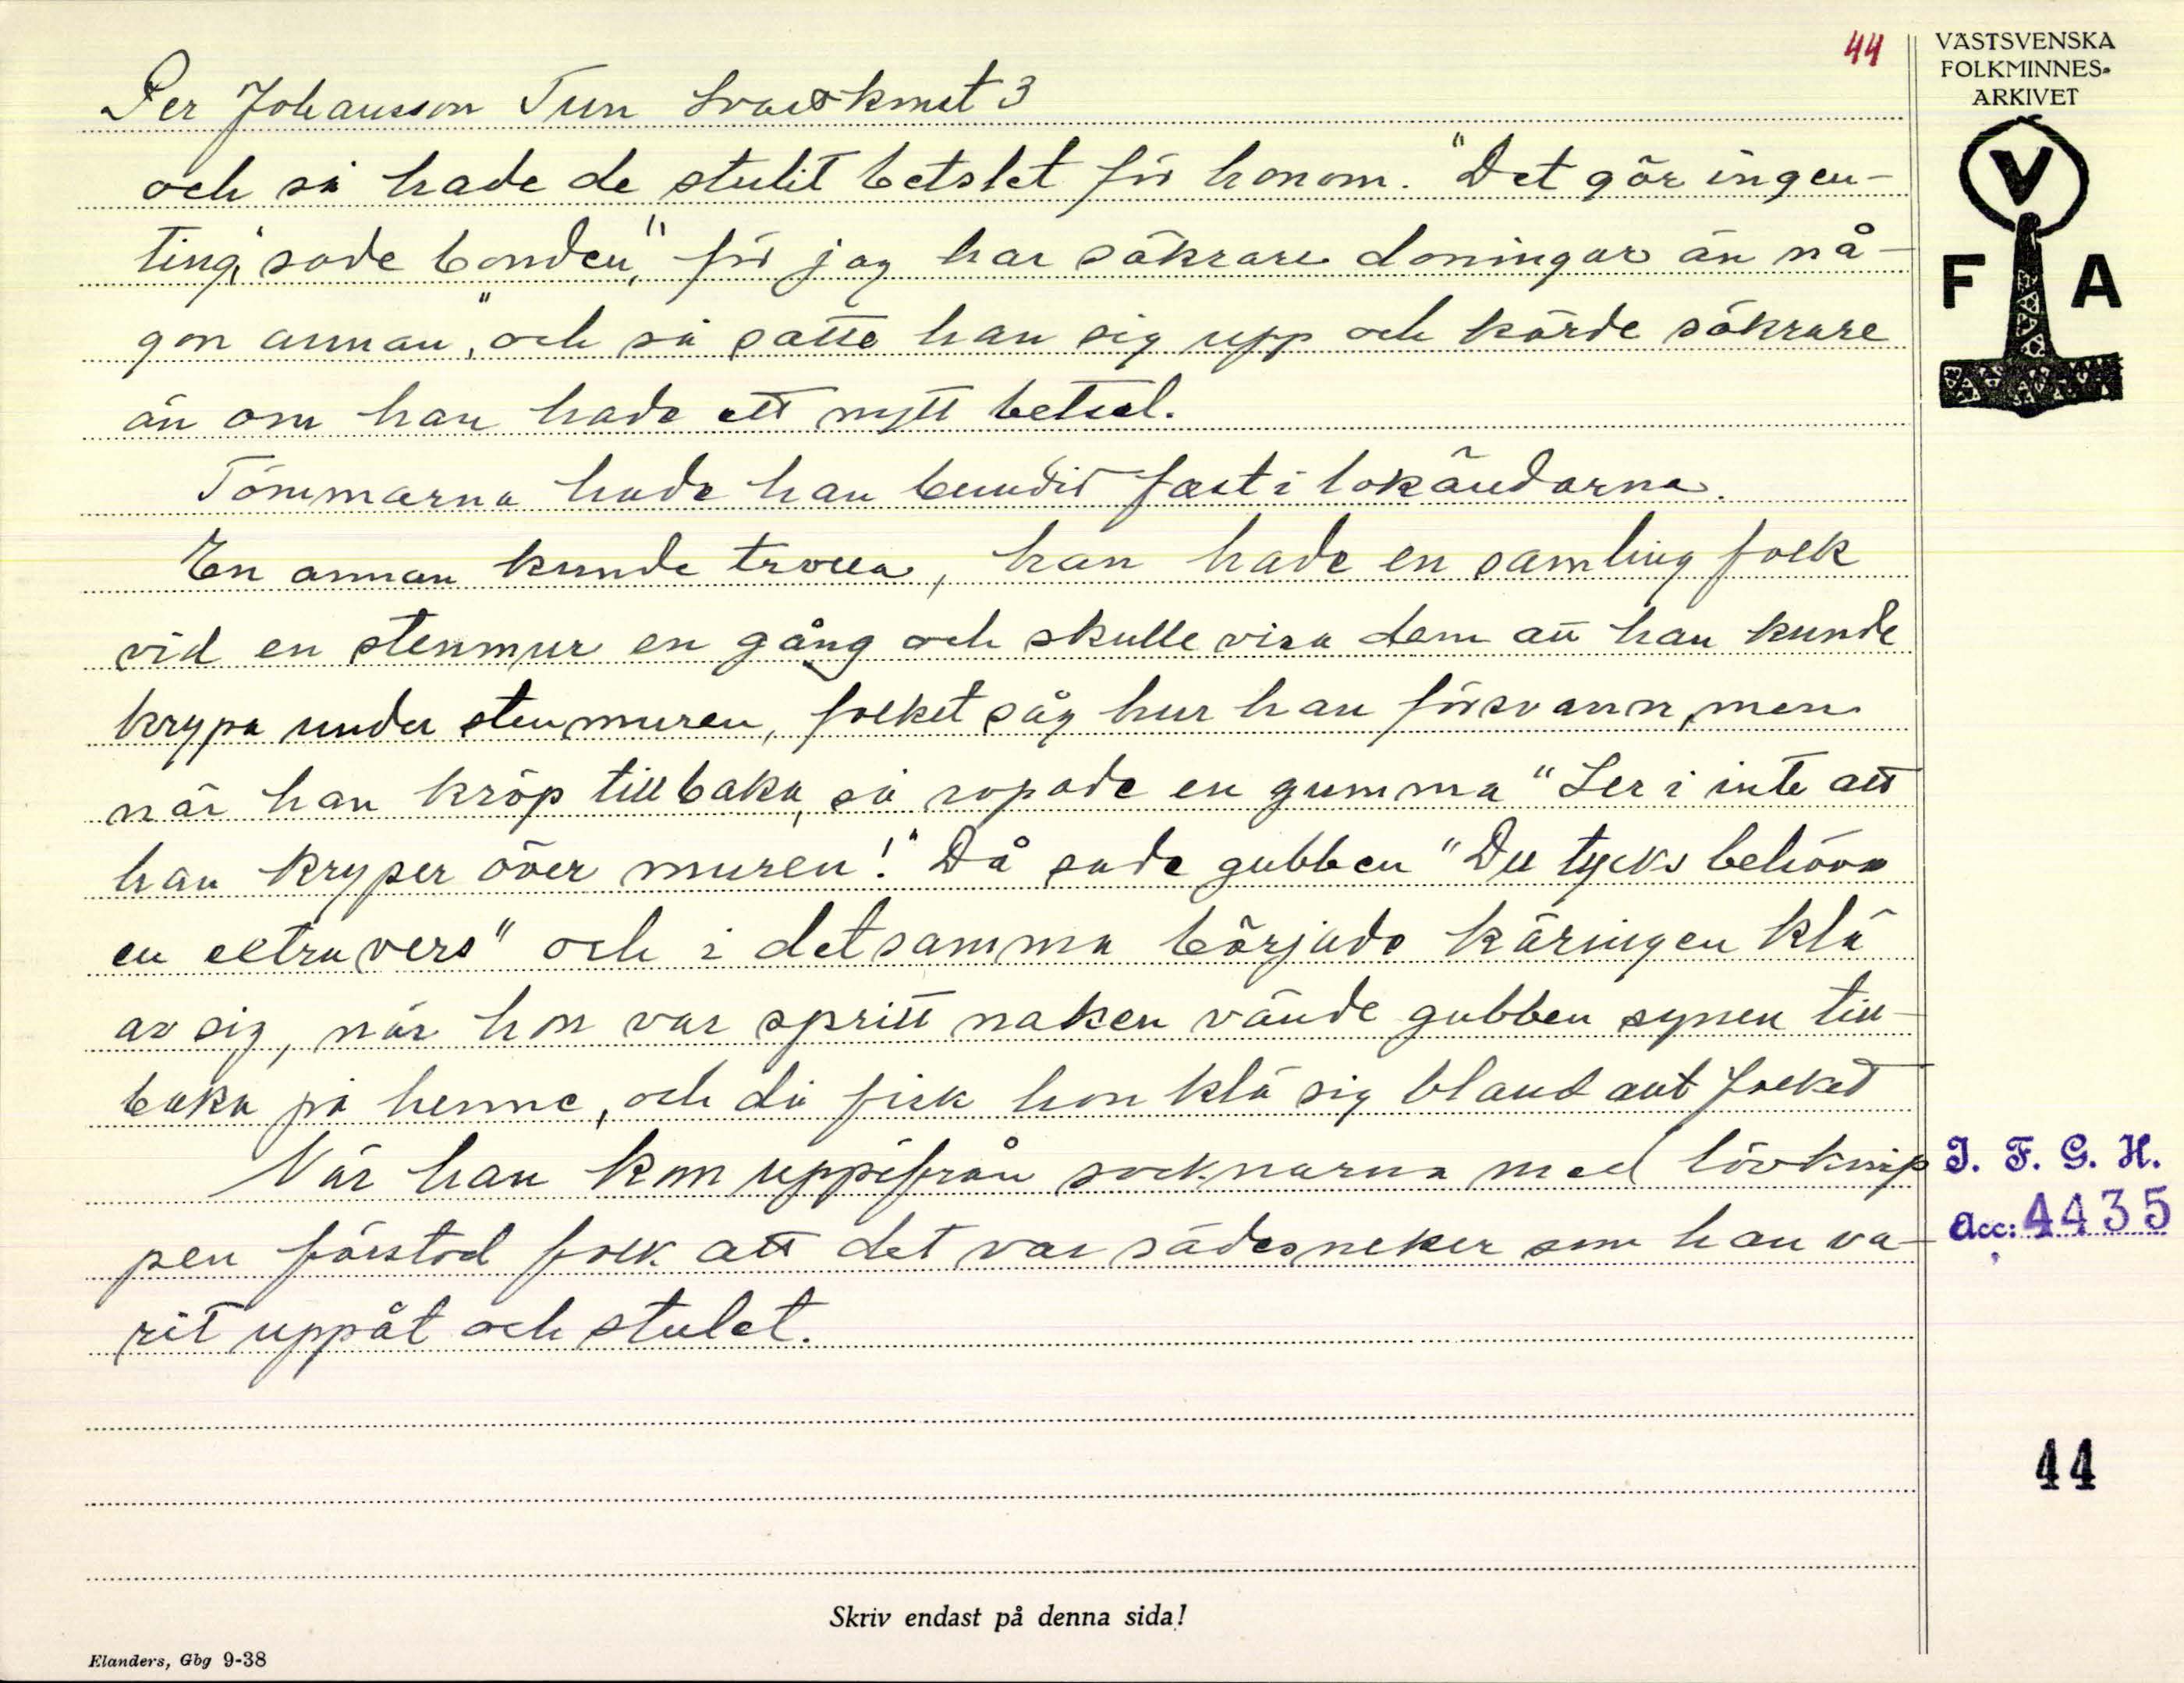 44
VÄSTSVENSKA
FOLKMINNES-
ARKIVET
V
F A
Per Johansson Tun 3
och så hade de stulit betslet för honom. "Det gör ingen-
ting," sade bonden," för jag har säkrare doningar än nå-
gon annan," och så satte han sig upp och körde säkrare
än om han hade ett nytt betsel.
Tömmarna hade han bundit fast i lokändarna.
En annan kunde trolla, han hade en samling folk
vid en stenmur en gång och skulle visa dem att han kunde
krypa under stenmuren, folket såg hur han försvann, men
när han kröp tillbaka, så ropade en gumma "Ser i inte att
han kryper över muren!" Då sade gubben "Du tycks behöva
en extra vers" och i detsamma började käringen klä
av sig, när hon var spritt naken vände gubben synen till-
baka på henne, och då fick hon klä sig bland ant folket
När han kom uppifrån socknarna med lövknip
pen förstod folk att det var sädesneker som han va-
rit uppåt och stulet.
I. F. G. H.
Acc: 4435
44
Skriv endast på denna sida!
Elanders, Gbg 9-38